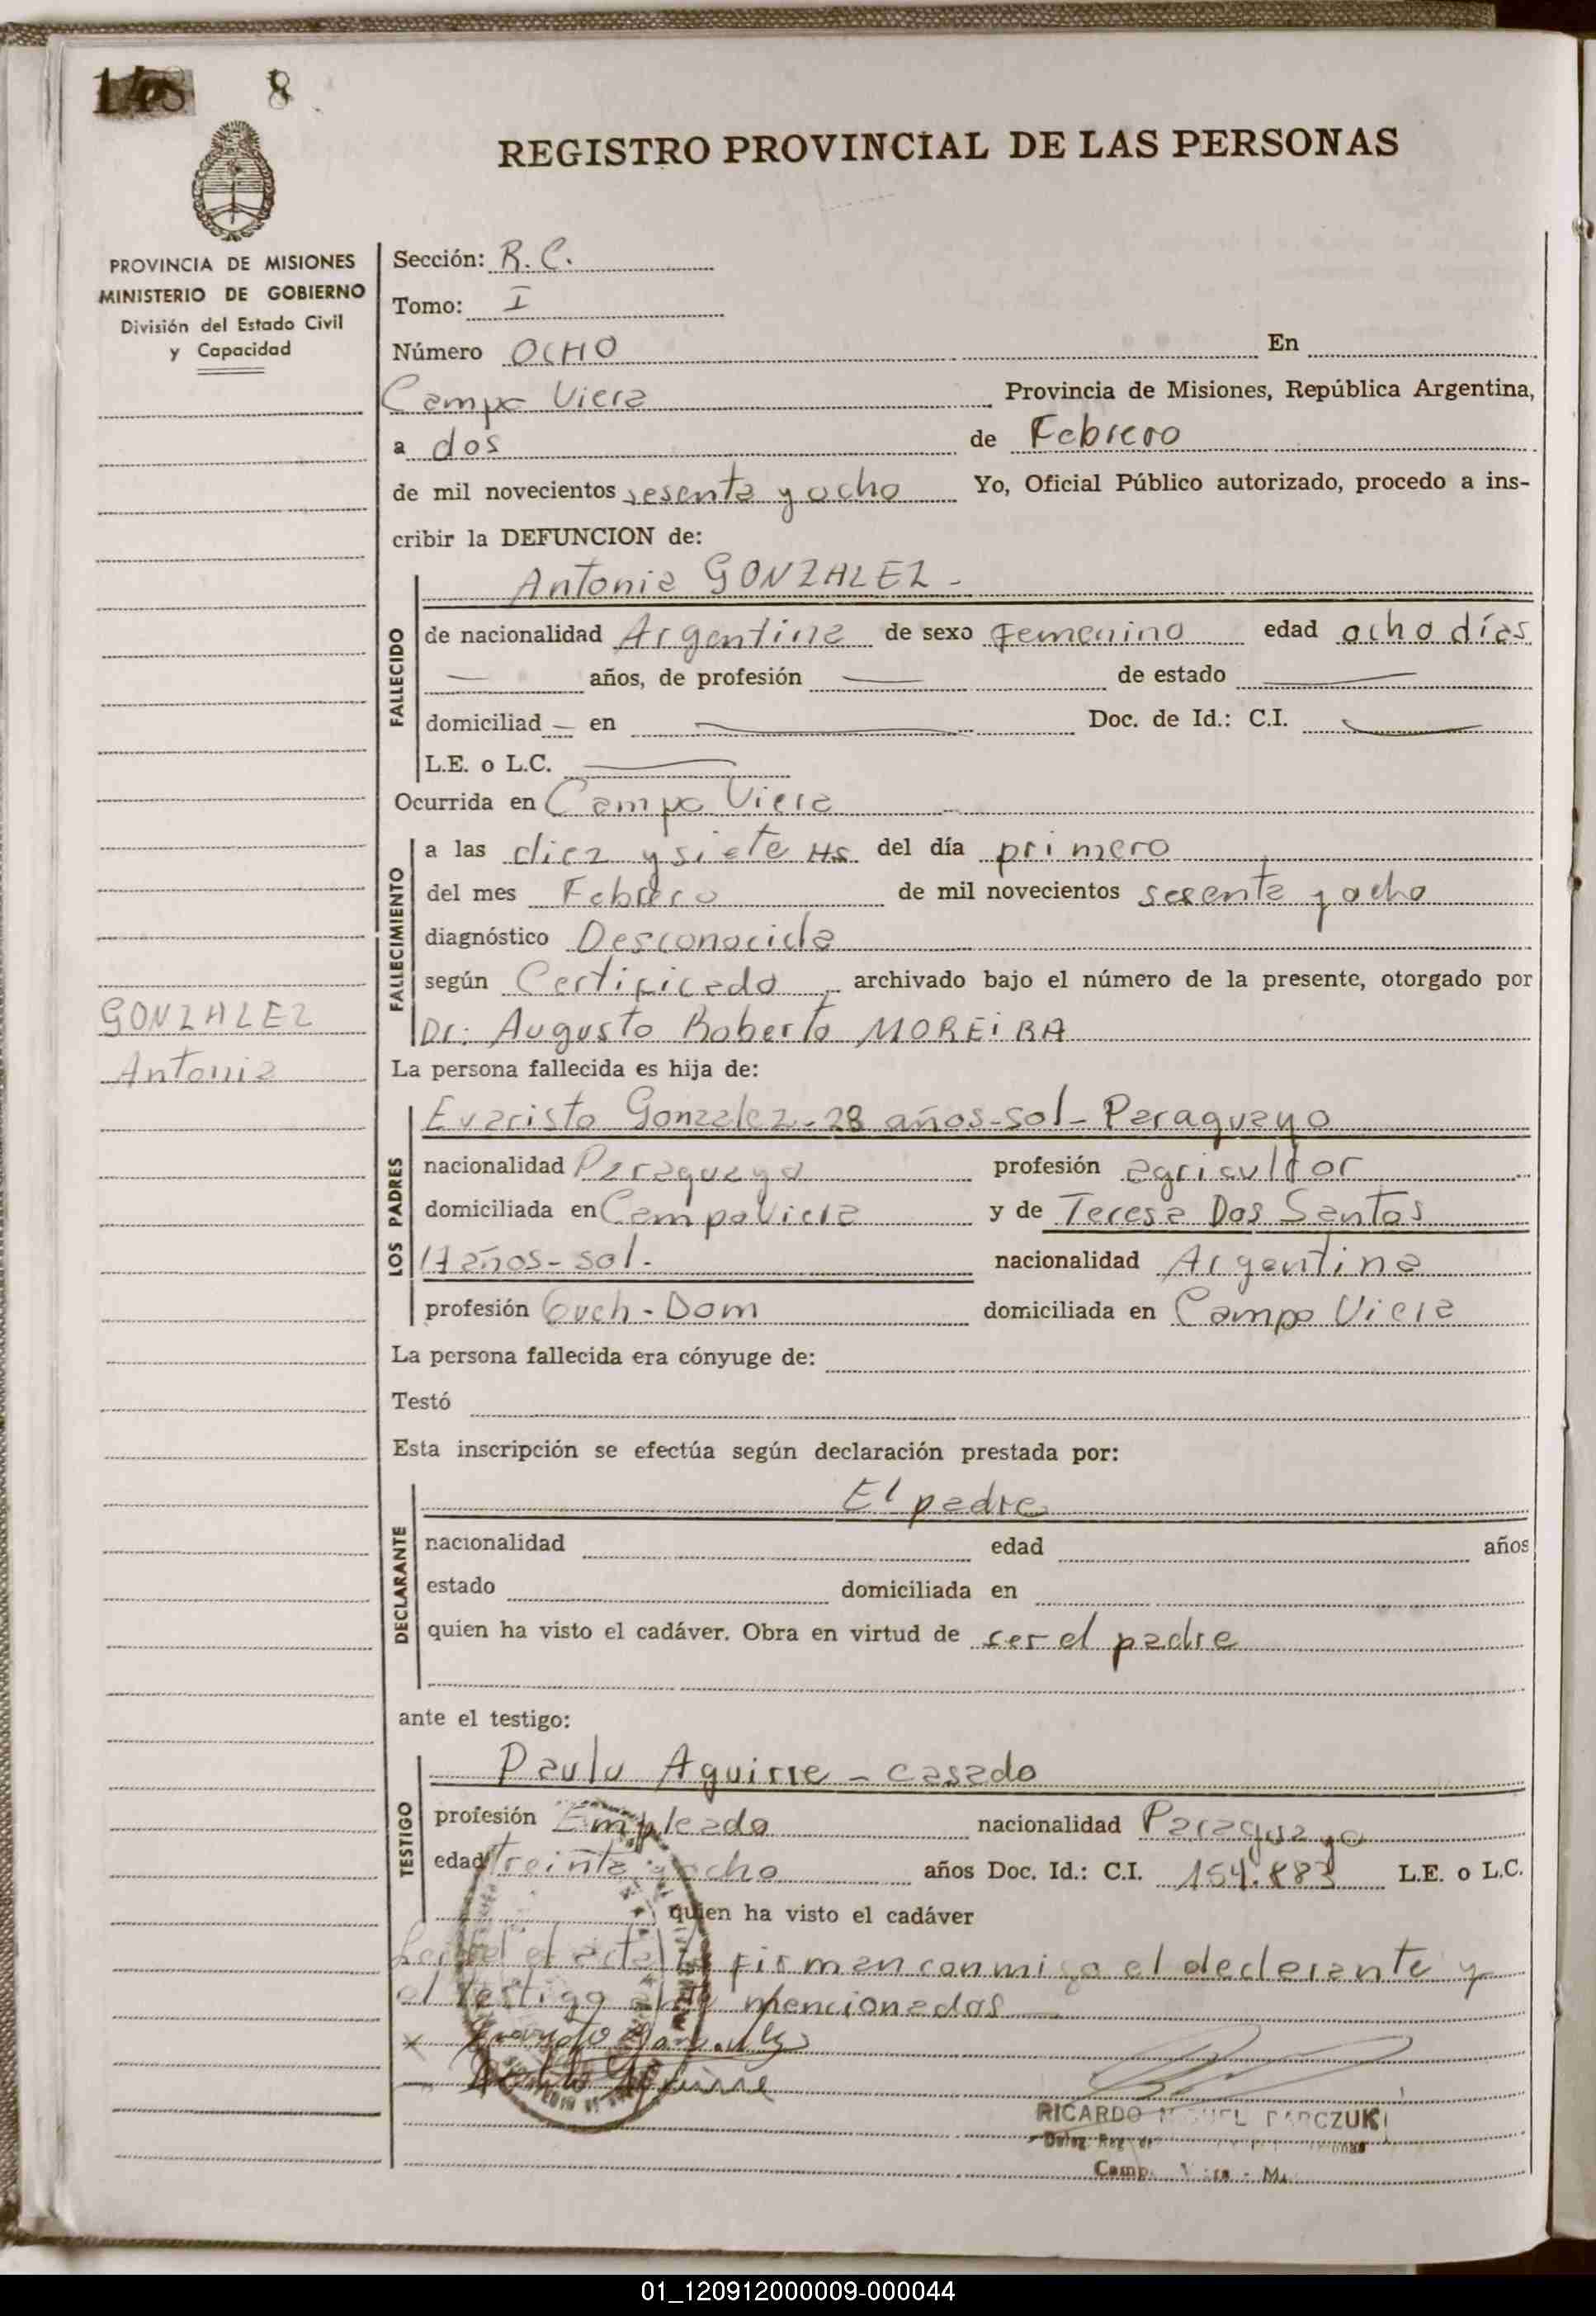 8
REGISTRO PROVINCIAL DE LAS PERSONAS
PROVINCIA DE MISIONES
MINISTERIO DE GOBIERNO
División del Estado Civil
y Capacidad
Sección: R. C.
Tomo: I
Número OCHO En
Campo Viera Provincia de Misiones, República Argentina,
a dos de Febrero
de mil novecientos sesenta y ocho Yo, Oficial Público autorizado, procedo a ins-
cribir la DEFUNCION de:
FALLECIDO
Antonia GONZALEZ -
de nacionalidad Argentina de sexo Femenino edad ocho días
— años, de profesión — de estado —
domiciliad — en — Doc. de Id.: C.I. —
L.E. o L.C. —
Ocurrida en Campo Viera
FALLECIMIENTO
a las diez y siete Hs del día primero
del mes Febrero de mil novecientos sesenta y ocho
diagnóstico Desconocida
según Certificado archivado bajo el número de la presente, otorgado por
Dr: Augusto Roberto MOREiRA
GONZALEZ
Antonia
La persona fallecida es hija de:
LOS PADRES
Evaristo Gonzalez - 28 años - sol - Paraguayo
nacionalidad Paraguaya profesión agricultor
domiciliada en Campo Viera y de Teresa Dos Santos
17 años - sol. nacionalidad Argentina
profesión Queh - Dom domiciliada en Campo Viera
La persona fallecida era cónyuge de:
Testó
Esta inscripción se efectúa según declaración prestada por:
DECLARANTE
El padre
nacionalidad edad años
estado domiciliada en
quien ha visto el cadáver. Obra en virtud de ser el padre
ante el testigo:
TESTIGO
Paulo Aguirre - casado
profesión Empleado nacionalidad Paraguayo
edad treinta y ocho años Doc. Id.: C.I. 154.883 L.E. o L.C.
quien ha visto el cadáver
el acta la firman conmigo el declarante y
el testigo mencionados
RICARDO
01_120912000009-000044